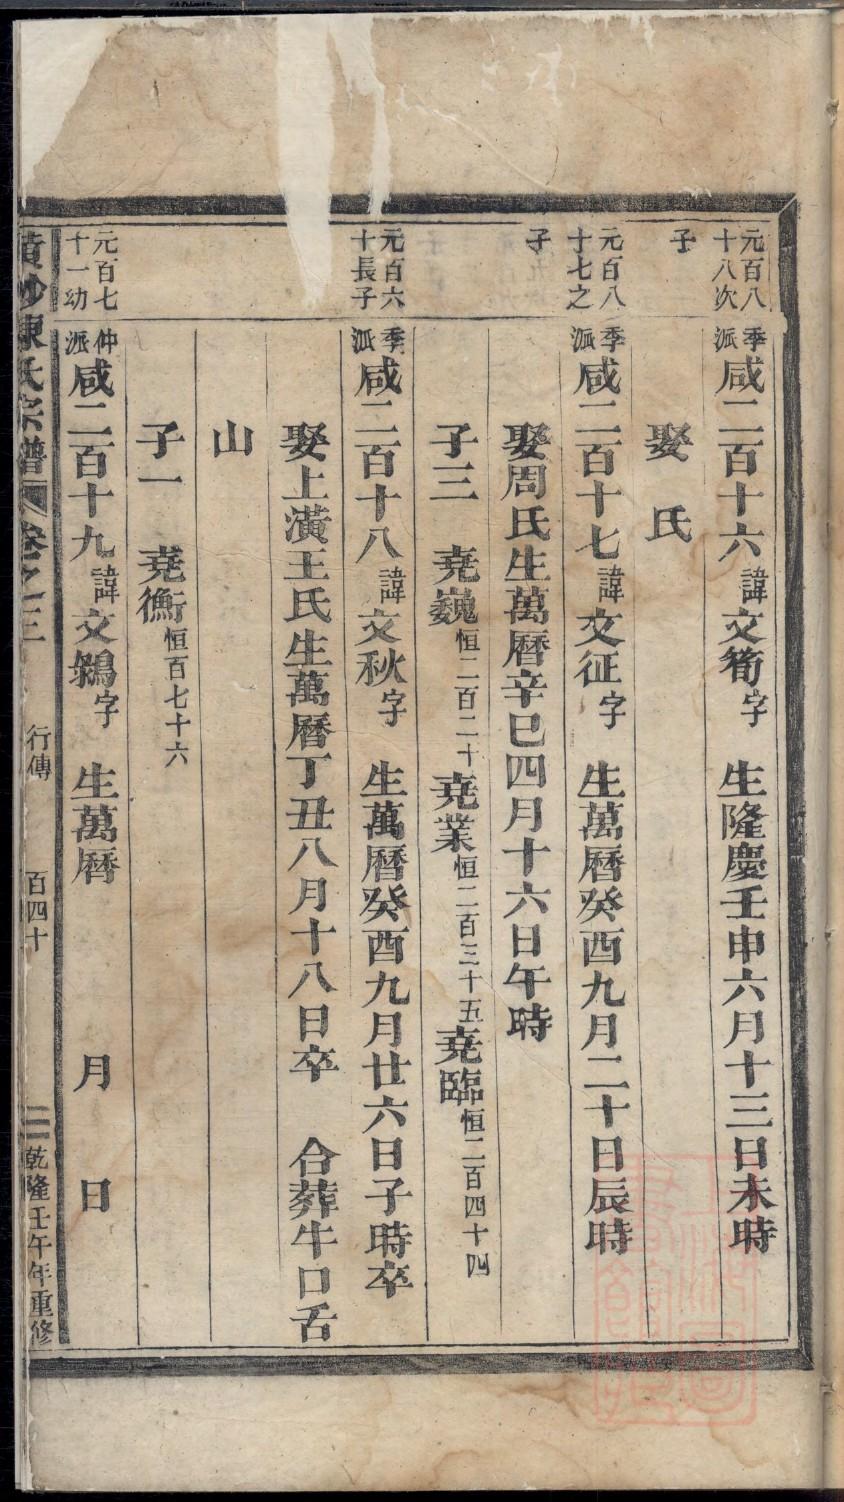 元百八十八次子
季派咸二百十六諱文筍字　生隆慶壬申六月十三日未時
娶　氏
元百八十七之子
季派咸二百十七諱文征字　生萬曆癸酉九月二十日辰時
娶周氏生萬曆辛巳四月十六日午時
子三　堯巍恒二百二十堯業恒二百三十五堯臨恒二百四十四
元百六十長子
季派咸二百十八諱文秋字　生萬曆癸酉九月廿六日子時卒
娶上濱王氏生萬曆丁丑八月十八日卒　合葬牛口舌
山
子一　堯衡恒百七十六
元百七十一幼
仲派咸二百十九諱文鵎字　生萬曆　月　日
陳氏宗譜　卷之三　行傳　百四十　乾隆壬午年重修
上海圖書館藏